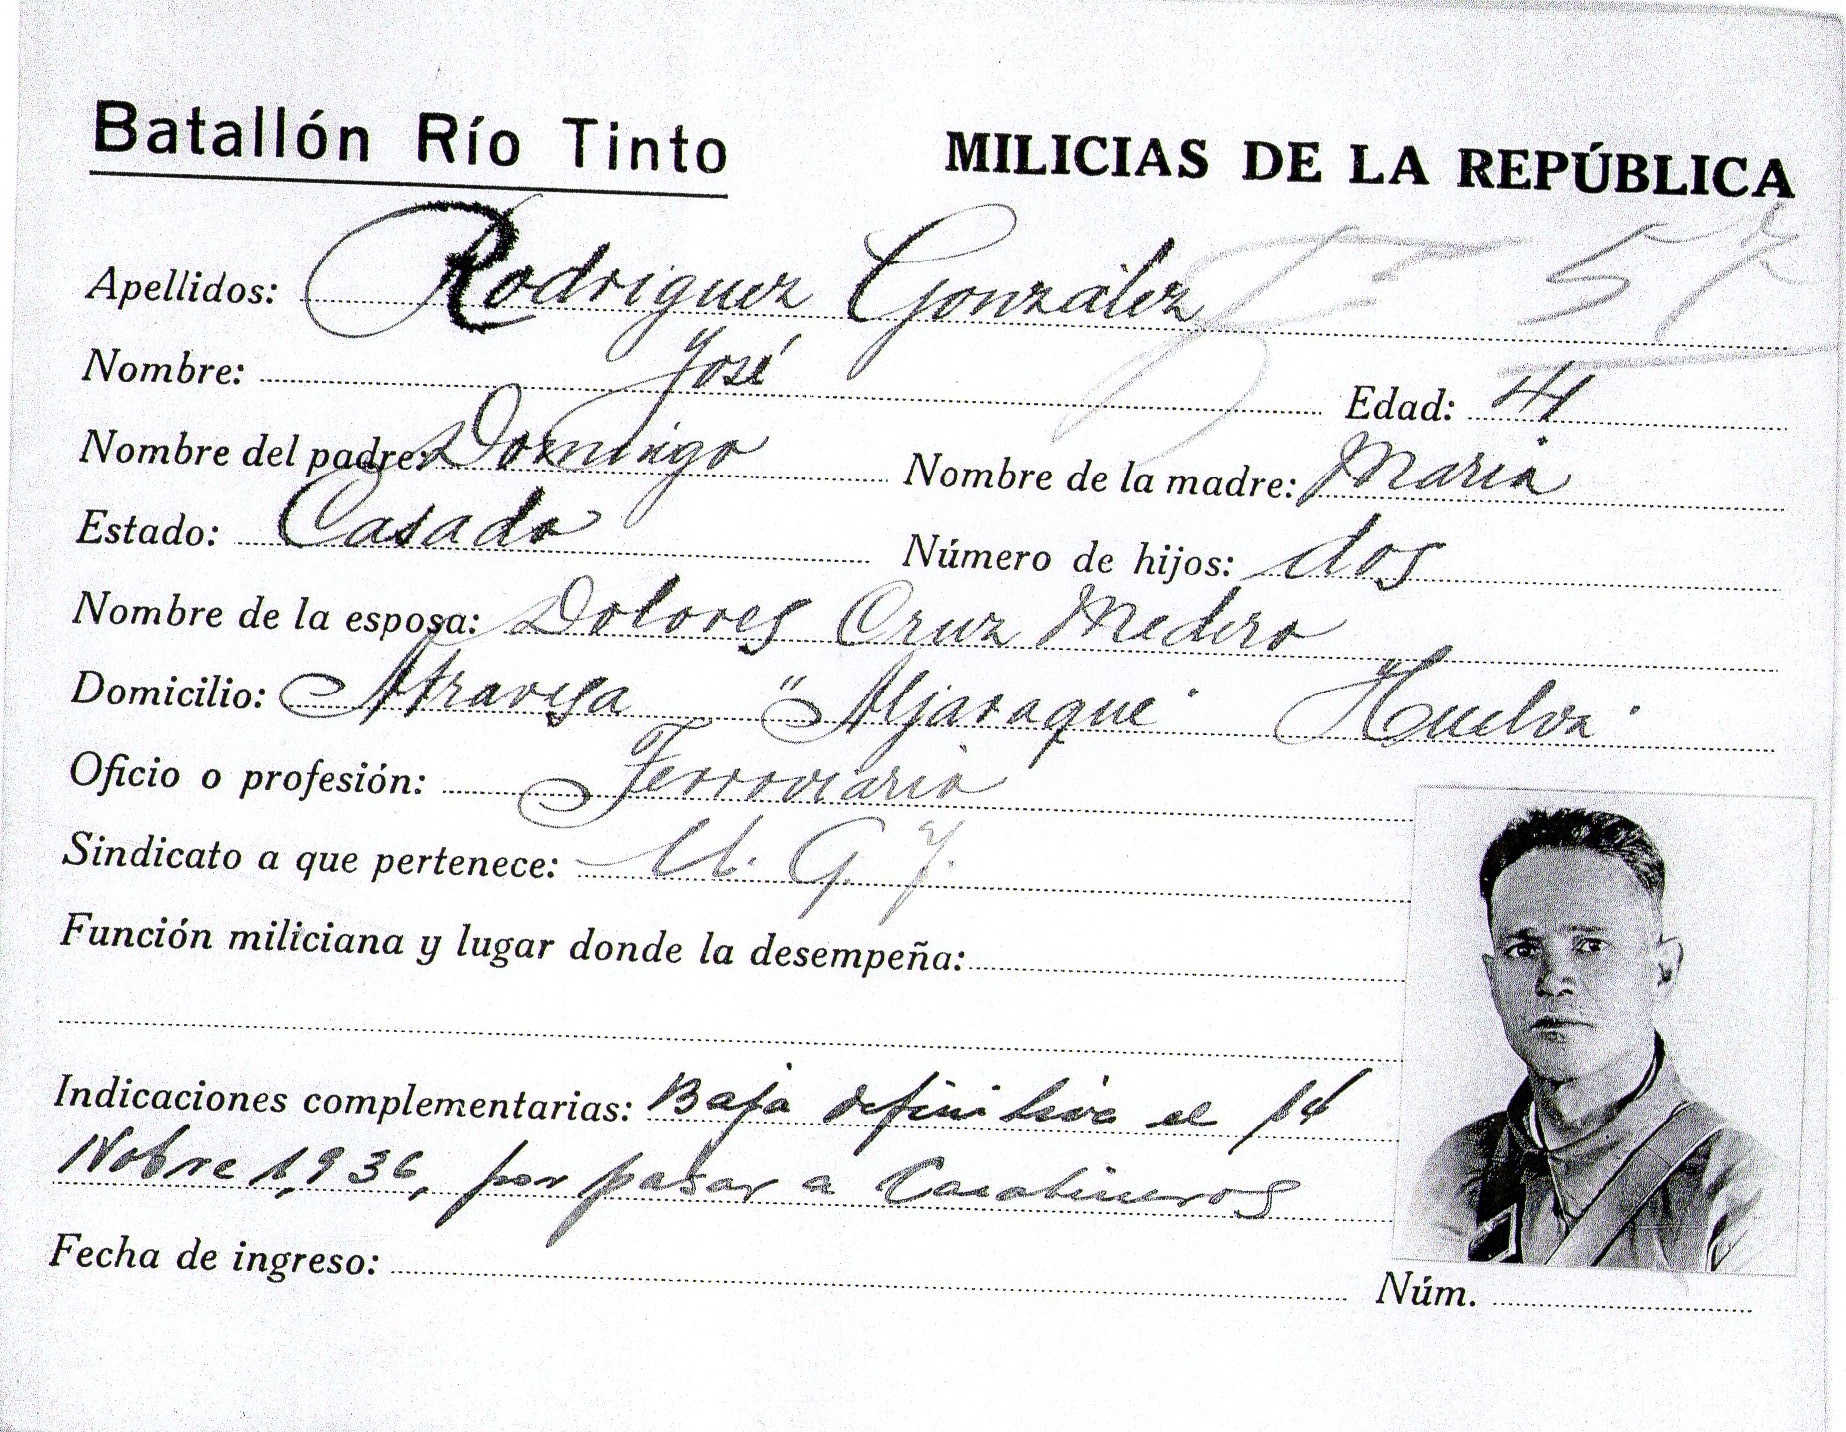 Batallón Río Tinto MILICIAS DE LA REPÚBLICA
57
Apellidos: Rodriguez González
Nombre: José Edad: 41
Nombre del padre: Domingo Nombre de la madre: Maria
Estado: Casado Número de hijos: dos
Nombre de la esposa: Dolores Cruz Medero
Domicilio: Atravesa "Aljaraque" Huelva
Oficio o profesión: Ferroviario
Sindicato a que pertenece: U. G. T.
Función miliciana y lugar donde la desempeña:
Indicaciones complementarias: Baja definitiva el 14
Nobre 1,936, por pasar a Carabineros
Fecha de ingreso:
Núm.